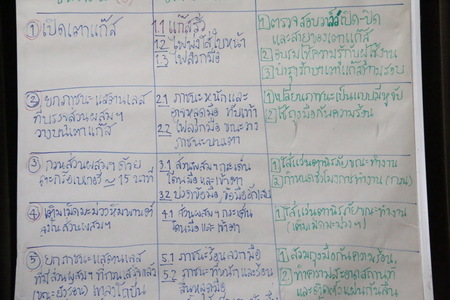 ① เปิดเตาแก๊ส
1.1 แก๊สรั่ว
1.2 ไฟพุ่งใส่ใบหน้า
1.3 ไฟลวกมือ
① ตรวจสอบวาล์วเปิด-ปิด
และสายของเตาแก๊ส
② อบรมให้ความรู้กับผู้ใช้งาน
③ บำรุงรักษาเตาแก๊สตามรอบ
② ยกภาชนะแสตนเลส
ที่บรรจุส่วนผสมฯ
วางบนเตาแก๊ส
2.1 ภาชนะหนักและ
อาจหลุดมือ ทับเท้า
2.2 ไฟลวกมือ ขณะวาง
ภาชนะบนเตา
① เปลี่ยนภาชนะเป็นแบบมีหูจับ
② ใช้ถุงมือกันความร้อน
③ กวนส่วนผสมฯ ด้วย
~ 15 นาที
3.1 ส่วนผสมฯ กระเด็น
โดนมือ และเข้าตา
3.2
① ใส่แว่นตานิรภัยขณะทำงาน
② กำหนดชั่วโมงการทำงาน
④ เติมเม็ดมะม่วงหิมพานต์
ลงในส่วนผสมฯ
4.1 ส่วนผสมฯ กระเด็น
โดนมือ และเข้าตา
① ใส่แว่นตานิรภัยขณะทำงาน
(เติมเม็ดมะม่วงฯ)
⑤ ยกภาชนะแสตนเลส
ที่ใส่ส่วนผสมฯ ที่กวนเสร็จแล้ว
5.1 ภาชนะร้อนลวกมือ
5.2 ภาชนะหนักและร้อน
① สวมถุงมือกันความร้อน
② ทำความสะอาดสถานที่